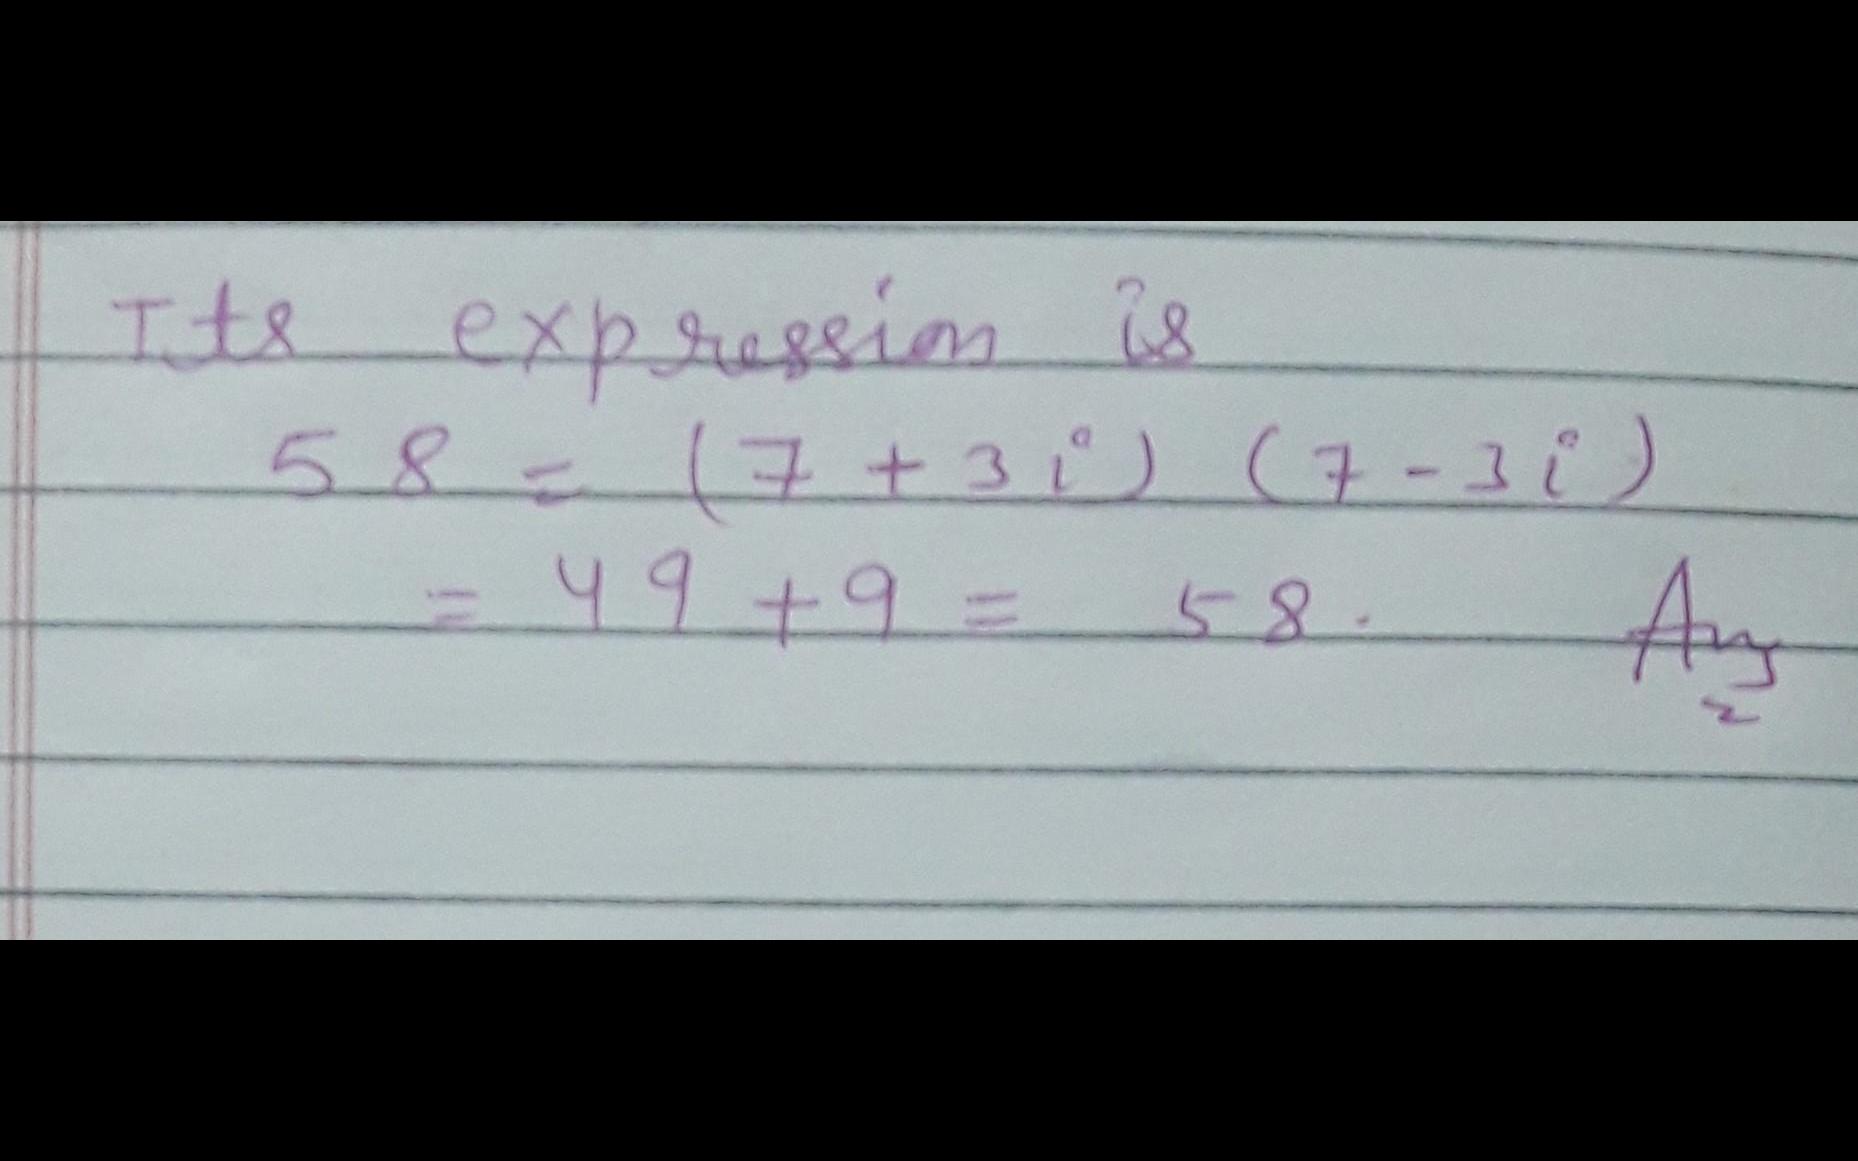 Its expression is
58 = (7 + 3i) (7 - 3i)
= 49 + 9 = 58. Ans